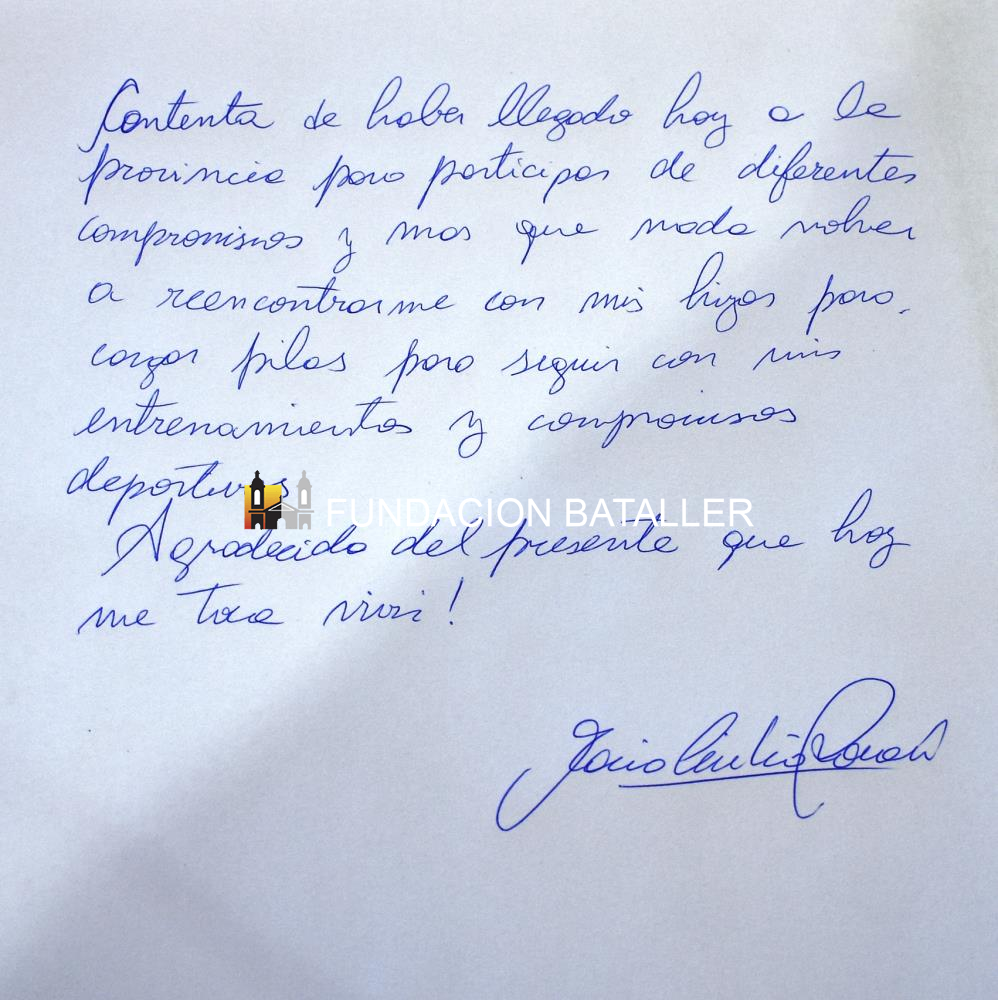 Contenta de haber llegado hoy a la
provincia para participar de diferentes
compromisos y mas que nada volver
a reencontrarme con mis hijos para
cargar pilas para seguir con mis
entrenamientos y compromisos
deportivos
FUNDACION BATALLER
Agradecida del presente que hoy
me toca vivir!